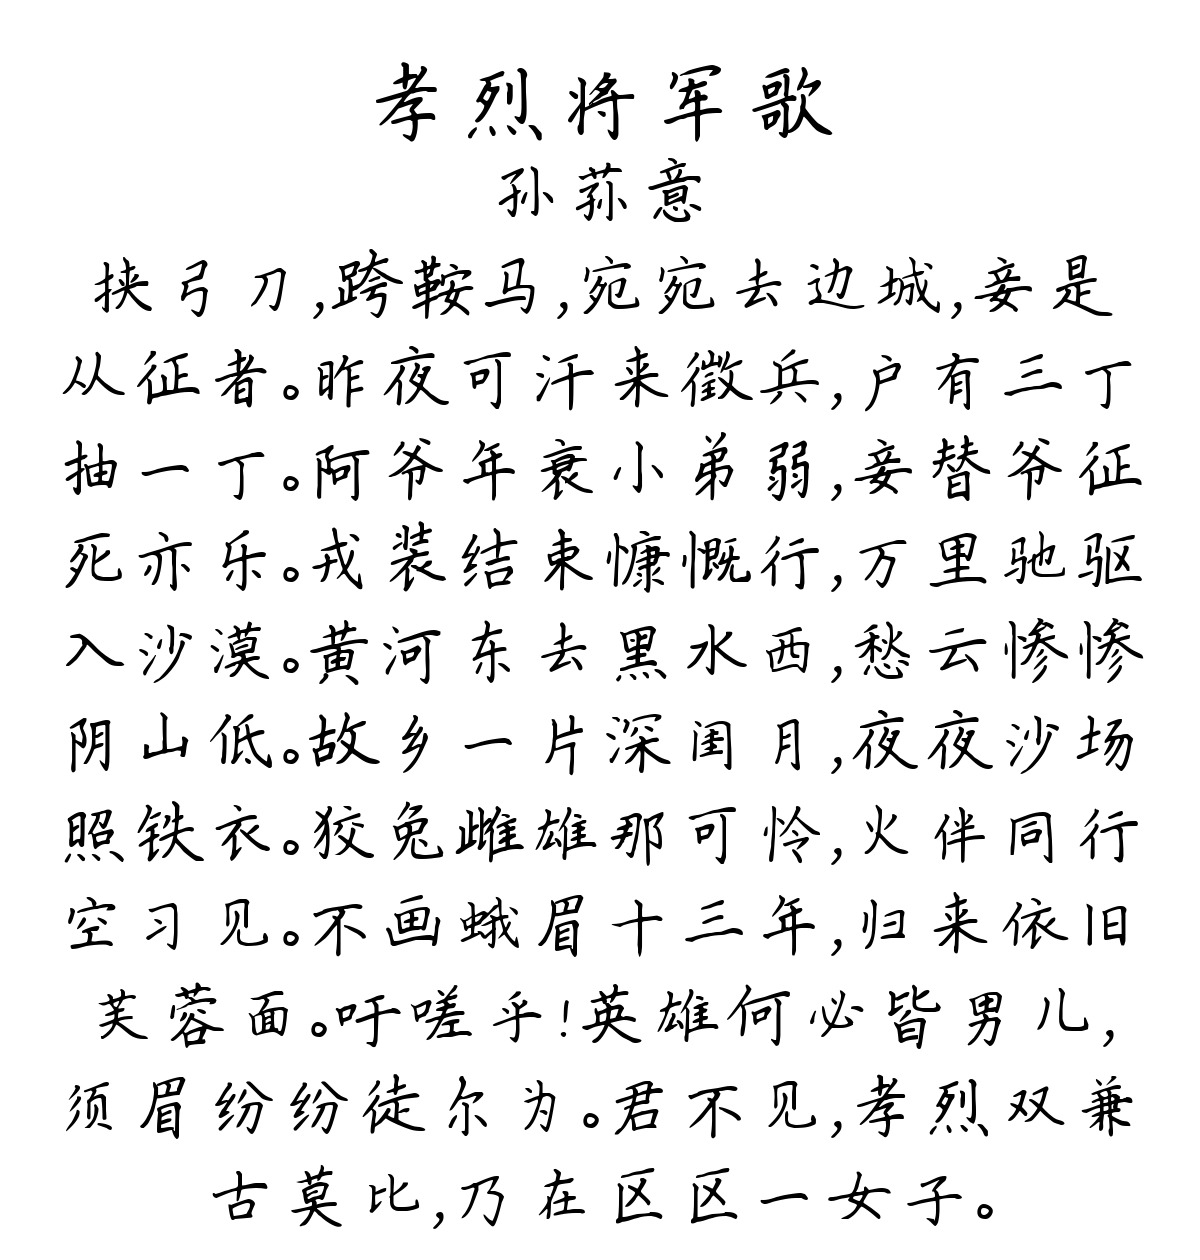 孝烈将军歌
孙荪意
挟弓刀,跨鞍马,宛宛去边城,妾是
从征者。昨夜可汗来徵兵,户有三丁
抽一丁。阿爷年衰小弟弱,妾替爷征
死亦乐。戎装结束慷慨行,万里驰驱
入沙漠。黄河东去黑水西,愁云惨惨
阴山低。故乡一片深闺月,夜夜沙场
照铁衣。狡兔雌雄那可怜,火伴同行
空习见。不画蛾眉十三年,归来依旧
芙蓉面。吁嗟乎!英雄何必皆男儿,
须眉纷纷徒尔为。君不见,孝烈双兼
古莫比,乃在区区一女子。